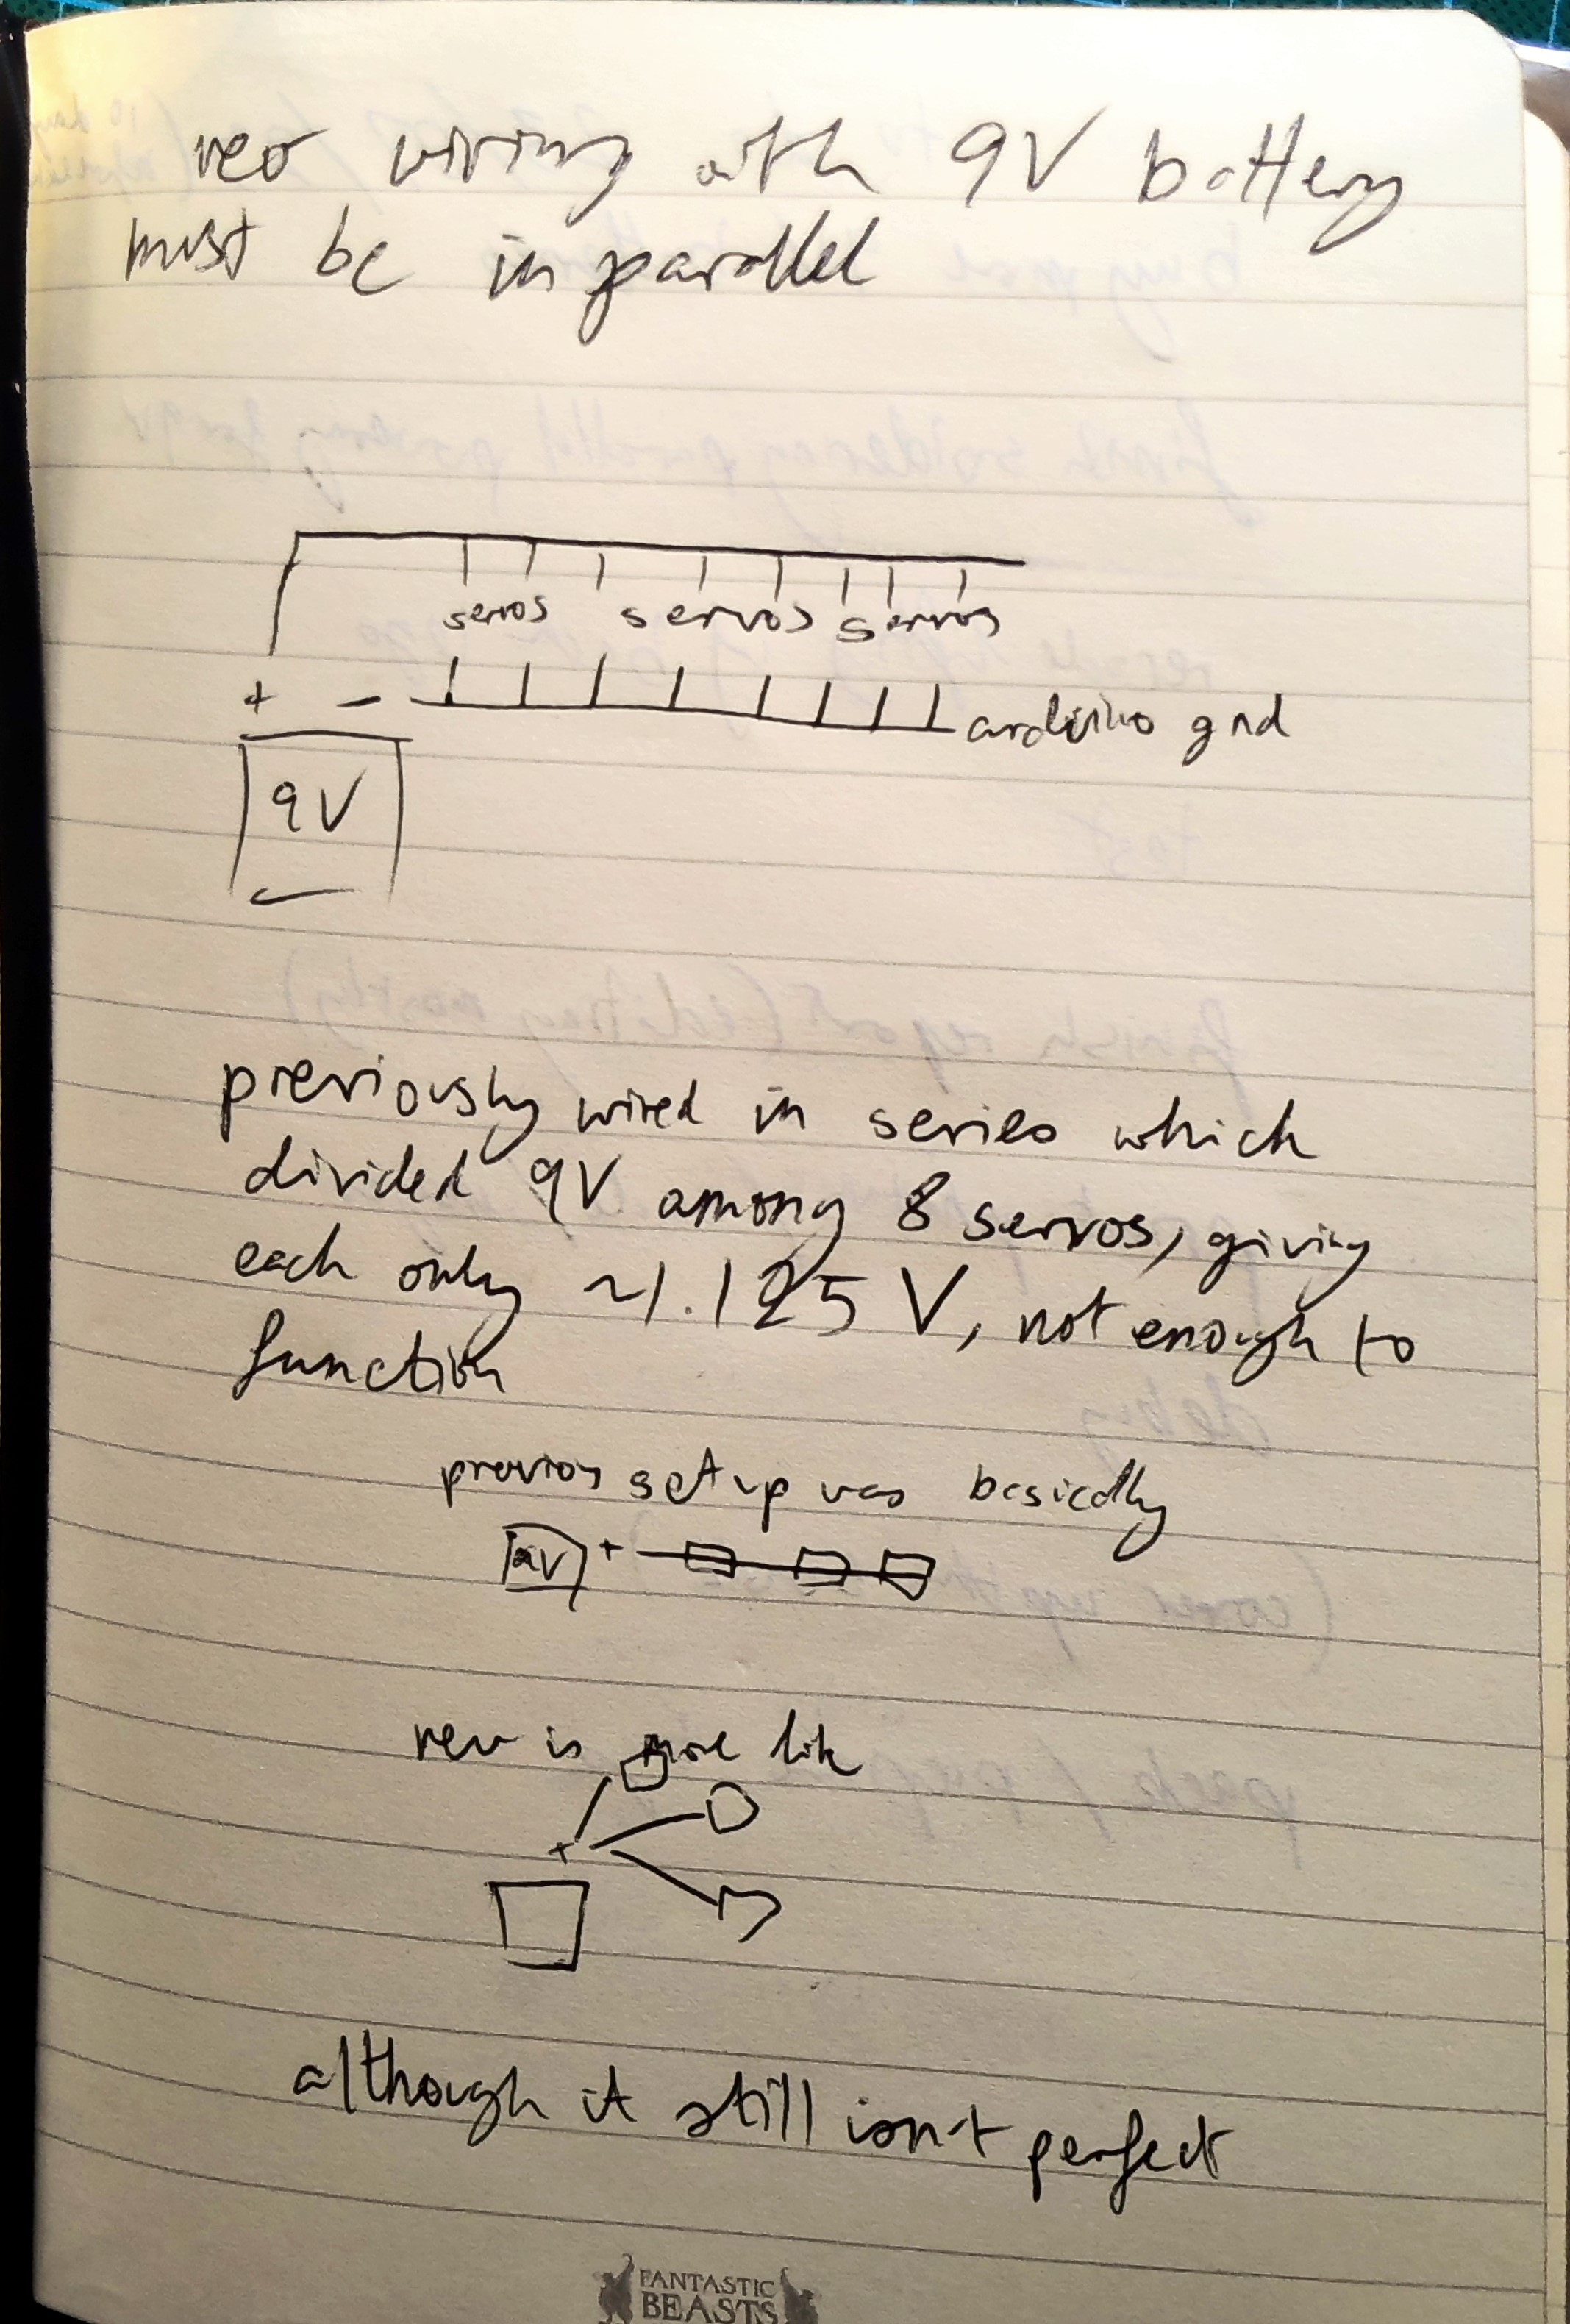 new wiring with 9V battery
must be in parallel
servos servos servos
+ - arduino gnd
9V
previously wired in series which
divided 9V among 8 servos, giving
each only ~1.125 V, not enough to
function
previous setup was basically
9V +
new is more like
+
although it still isn't perfect
FANTASTIC
BEASTS